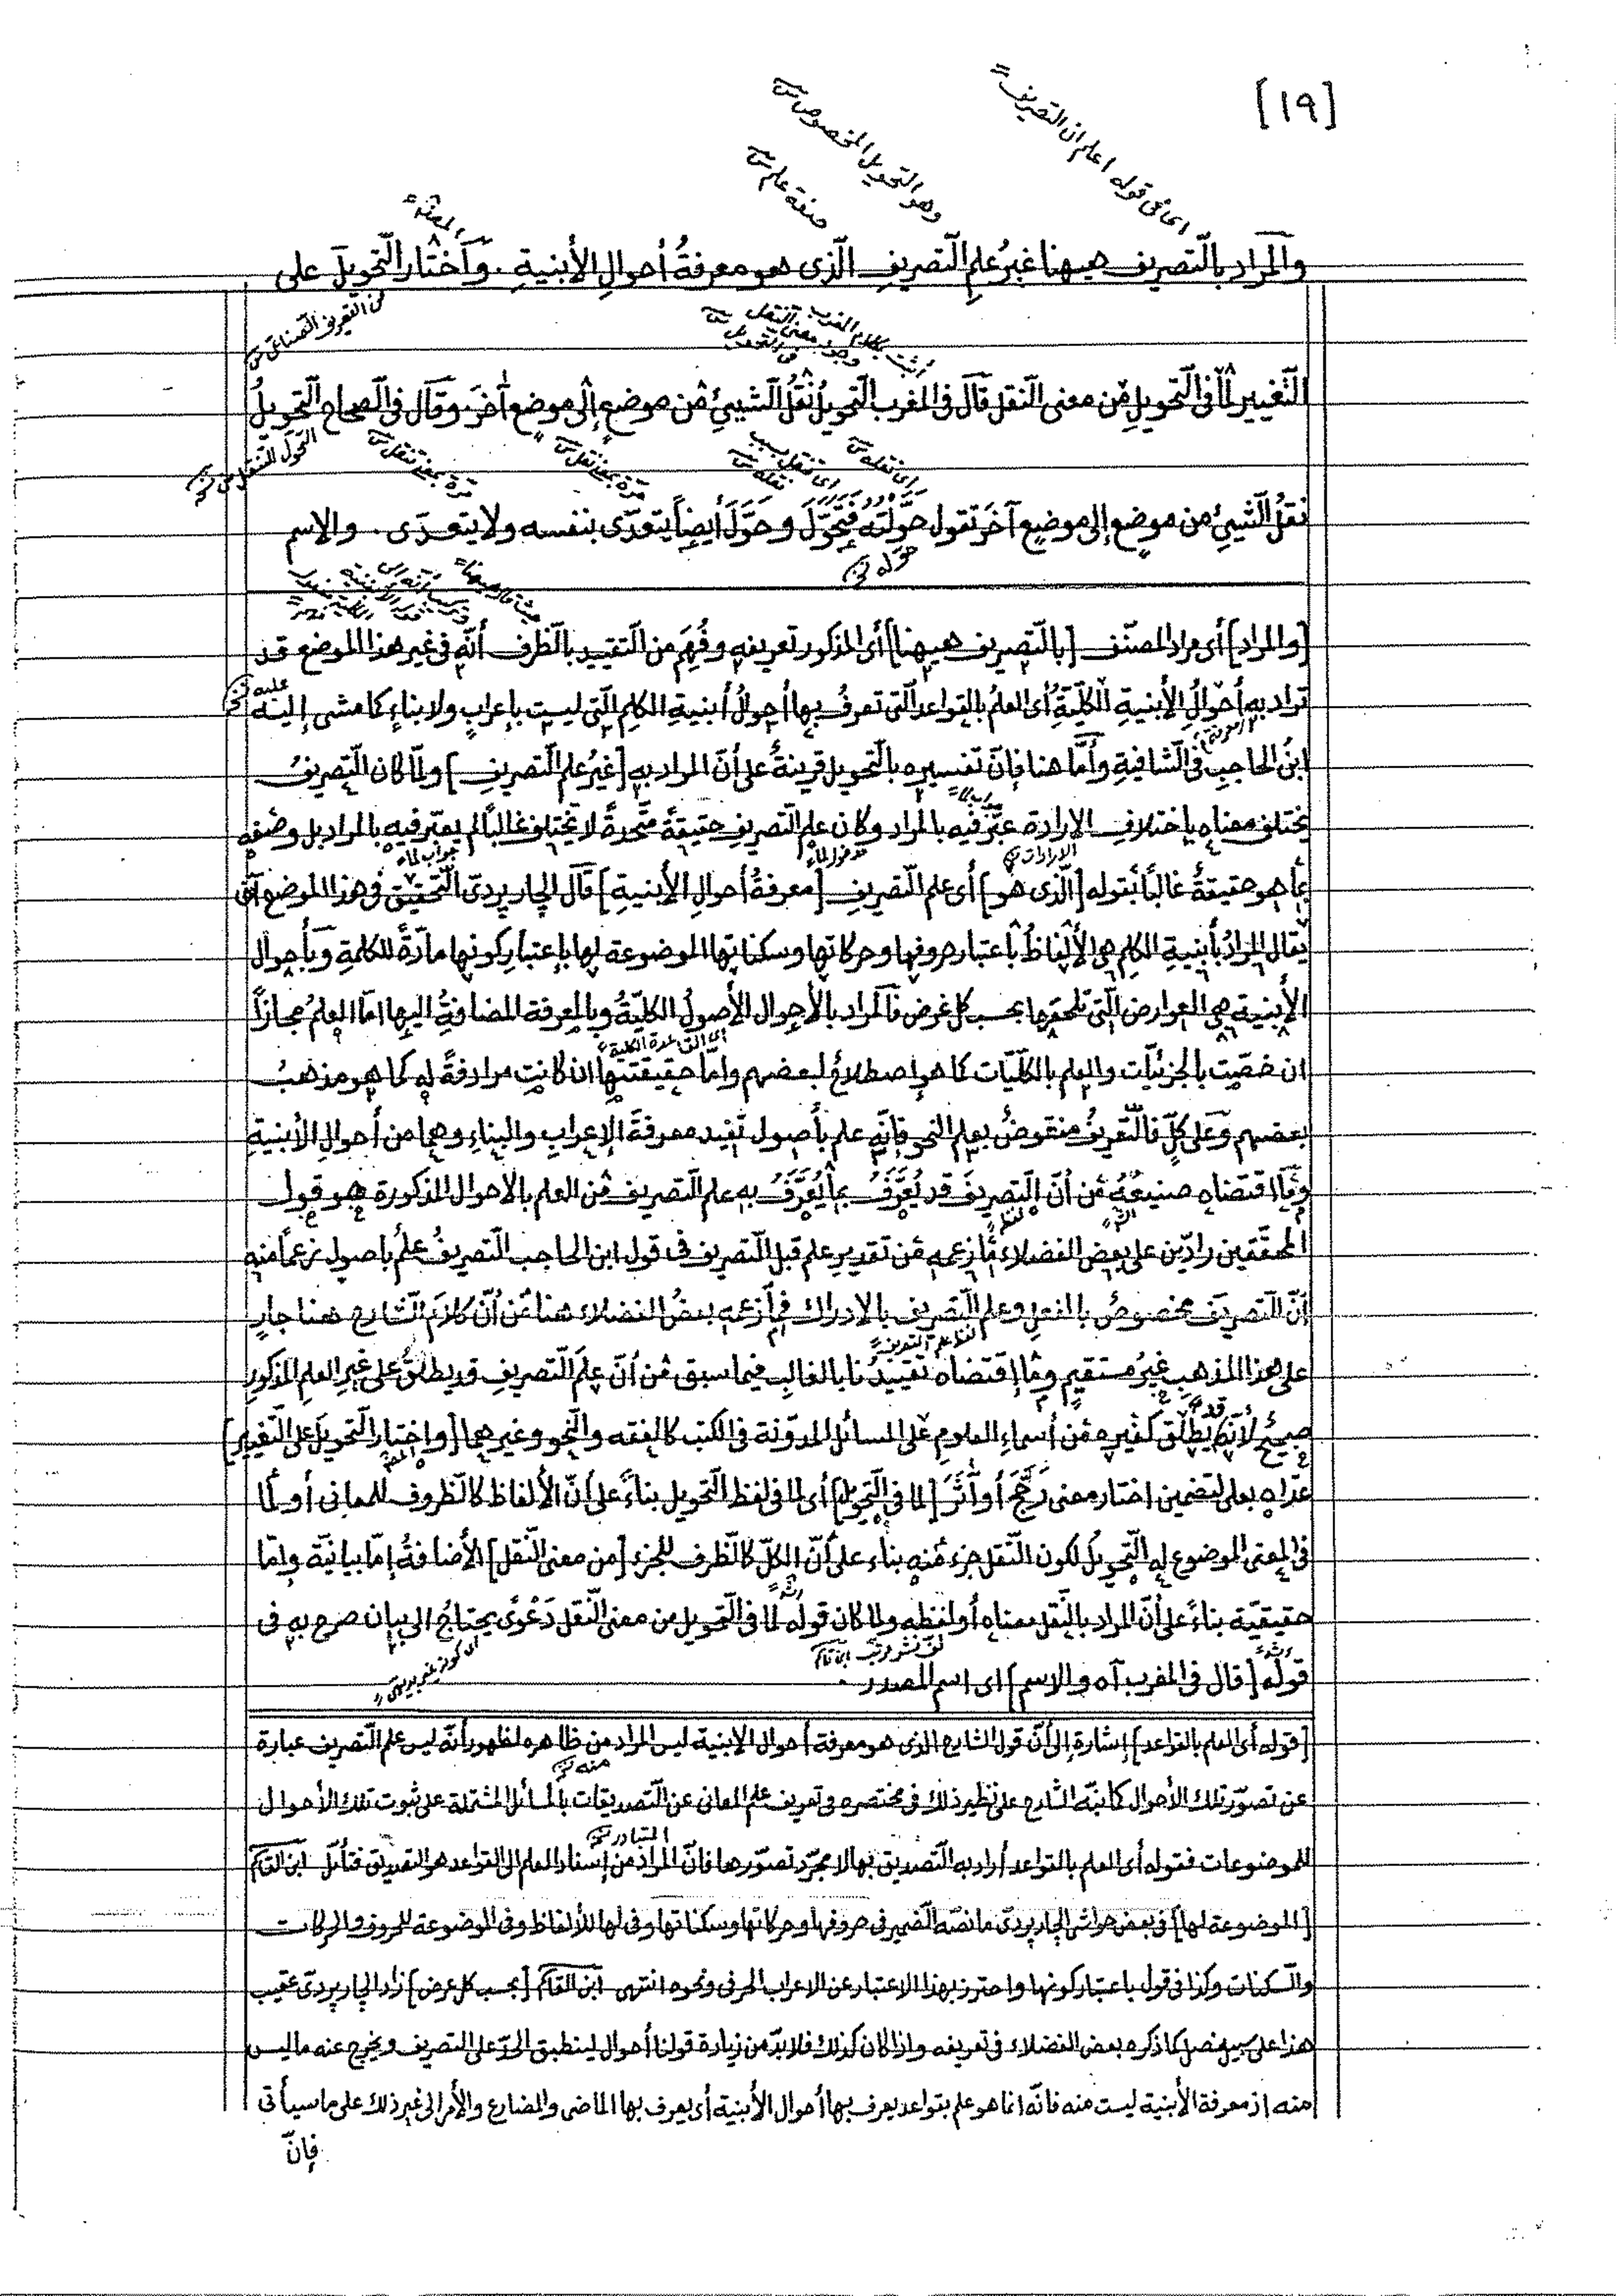 [١٩]
اى فى قوله اعلم ان التصريف
وهو التحويل المخصوص
صفة علم
المصنف
والمراد بالتّصريف هيهنا غيرُ علمِ التّصريفِ الّذى هو معرفةُ أحوالِ الأبنيةِ . وَاختار التّحويلَ على
من التعريف الصناعى
التّغيير لمٰا فى التّحويلِ مِن معنى النّقل قال فى المغرب التّحويلُ نقلُ الشّيئِ من موضعٍ إلى موضعٍ آخَرَ . وقال فى الصحاح التّحويلُ
اى نقله
اى تنقل بسبب نقله
مرة بمعنى نقل
مرة بمعنى تنقل
التحول التنقل من
نقلُ الشّيئِ من موضعٍ إلى موضعٍ آخَرَ تقول حوّلتَه فتحَوّلَ وحَوّلَ أيضاً يتعدّى بنفسه ولا يتعدّى . والإسم
حوله
[والمراد] أى مراد المصنّف [بالتّصريف هيهنا] أى المذكور تعريفه وفُهِمَ من التّقييد بالظّرف أنّه فى غير هذا الموضع قد
تراد به أحوالُ الأبنيةِ الكلّيّةِ أى العلمُ بالقواعد الّتى تعرفُ بها أحوالُ أبنيةِ الكلم الّتى ليست بإعرابٍ ولا بناءٍ كما مشى إليه
عليه
ابنُ الحاجبِ فى الشّافيةِ وأمّا هنا فإنّ تفسيره بالتّحويل قرينةٌ على أنّ المراد به [غيرُ علم التّصريفِ] ولمّا كان التّصريفُ
يختلف معناه باختلاف الإرادة عبّر فيه بالمراد وكان علم التّصريفِ حقيقةً متّحدةً لا تختلف غالباً لم يعبّر فيه بالمراد بل وصفه
جواب لما
مدخول لما
الارادات
بما هو حقيقةٌ غالباً بقوله [الّذى هو] أى علم التّصريفِ [معرفةُ أحوالِ الأبنيةِ] قال الچارپردى التّحقيق فى هذا الموضع أن
يقال المرادُ بأبنيةِ الكلمِ هى الألفاظُ باعتبار حروفها وحركاتها وسكناتها الموضوعة لها بإعتبارِ كونها مادّةً للكلمةِ وبأحوال
الأبنية هى العوارض الّتى تلحقها بحسب كل غرض فالمراد بالأحوال الأصولُ الكليّةُ وبالمعرفة المضافةُ اليها امّا العلمُ مجازاً
اى القاعدة الكلية
ان خصّت بالجزئيّات والعلم بالكلّيّات كما هو إصطلاحٌ لبعضهم وامّا حقيقتها ان كانت مرادفةً له كما هو مذهبُ
بعضهم وعلى كلٍّ فالتّعريفُ منقوضٌ بعلم النحو فإنّه علم بأصول تفيد معرفةَ الإعرابِ والبناءِ وهما من أحوالِ الأبنيةِ
وما اقتضاه صنيعُهُ من أنّ التّصريفَ قد يُعَرَّفُ بما يُعَرَّفُ به علم التّصريف من العلم بالأحوال المذكورة هو قول
المحقّقين رادّين على بعض الفضلاء ما زعمه من تقديرِ علم قبل التّصريف فى قول ابن الحاجب التّصريفُ علمٌ بأصول زعماً منه
أنّ التّصريفَ مخصوصٌ بالفعلِ وعلم التّصريف بالإدراك فما زعمه بعضُ الفضلاء هنا من أنّ كلامَ الشّارح هنا جارٍ
على هذا المذهب غيرُ مستقيمٍ وما إقتضاه تقييدُنا بالغالبِ فيما سبق من أنّ علمَ التّصريفِ قد يطلقُ على غيرِ العلم المذكورِ
صحيحٌ لأنّه يطلق كغيره من أسماءِ العلومِ على المسائل المدوّنة فى الكتب كالفقه والنّحو وغيرهما [واختار التّحويلَ على التّغيير]
عدّاه بعلى لتضمين اختار معنى رَجَّحَ أو آثَرَ [لما فى التّحويل] أى لما فى لفظ التّحويل بناءً على أنّ الألفاظ كالظّروف للمعانى أو لما
فى المعنى الموضوع له التّحويلُ لكون النّقل جزء منه بناء على أنّ الكلّ كالظّرف للجزء [من معنى النّقل] الأضافةُ إمّا بيانيّة وإمّا
حقيقيّة بناءً على أنّ المراد بالنّقل معناه أو لفظه ولما كان قوله لما فى التّحويل من معنى النّقل دَعْوًى يحتاجُ الى بيان صرح به فى
لف نشر مرتب ابن قاسم
لكونه غير بديهى
قوله [قال فى المغرب آه والإسم] اى اسم المصدر .
[قوله أى العلم بالقواعد] إشارة إلى أنّ قول الشارح الذى هو معرفة أحوال الابنية ليس المراد من ظاهره لظهور أنّه ليس علم التّصريف عبارة
منه
عن تصوّر تلك الأحوال كما نبّه الشارح على نظير ذلك فى مختصره فى تعريف علم المعانى عن التّصديقات بالمسائل المشتملة على ثبوت تلك الأحوال
المتبادر
للموضوعات فقوله أى العلم بالقواعد أراد به التّصديق بها لا مجرّد تصوّرها فانّ المراد من إسناد العلم الى القواعد هو التصديق فتأمّل ابن القاسم
[الموضوعة لها] فى بعض حواشى الچارپردى ما نصّه الضمير فى حروفها وحركاتها وسكناتها وفى لها للألفاظ وفى الموضوعة للحروف والحركات
والسكنات وكذا فى قول باعتبار كونها واحترز بهذا الاعتبار عن الاعراب الحرفى ونحوه انتهى ابن القاسم [بحسب كل غرض] زاد الچارپردى عقيب
هذا على سبيل فصل كما ذكره بعض الفضلاء فى تعريفه واذا كان كذلك فلا بدّ من زيادة قولنا أحوال لينطبق الحدّ على التصريف ويخرج عنه ما ليس
منه اذ معرفة الأبنية ليست منه فانّه انما هو علم بقواعد يعرف بها أحوال الأبنية أى يعرف بها الماضى والمضارع والأمر الى غير ذلك على ما سيأتى
فإنّ